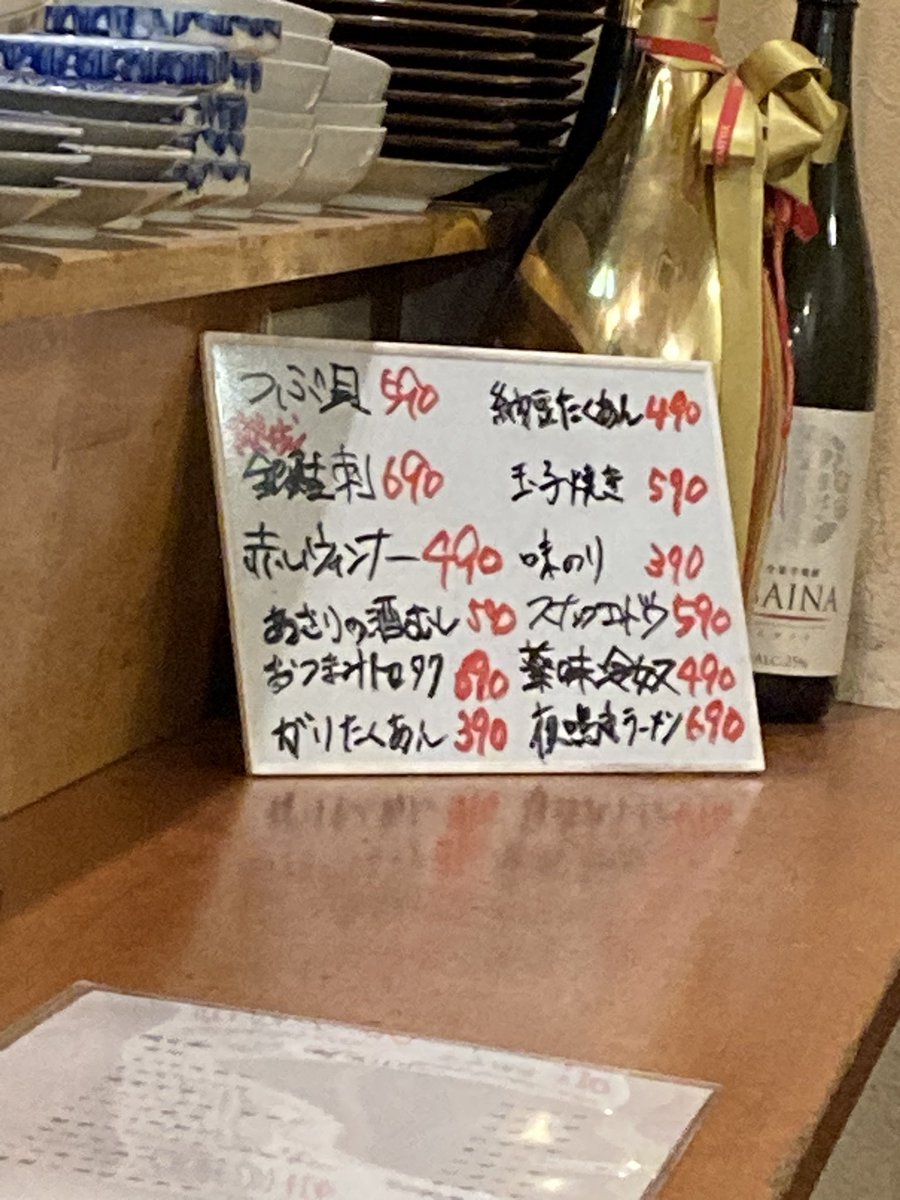 つぶ貝 590
銀鮭刺 690
赤いウィンナー 490
あさりの酒むし 590
おつまみトロタク 690
がりたくあん 390
納豆たくあん 490
玉子焼き 590
味のり 390
スナックエンドウ 590
薬味冷奴 490
夜鳴きラーメン 690
AINA
ALC.25%